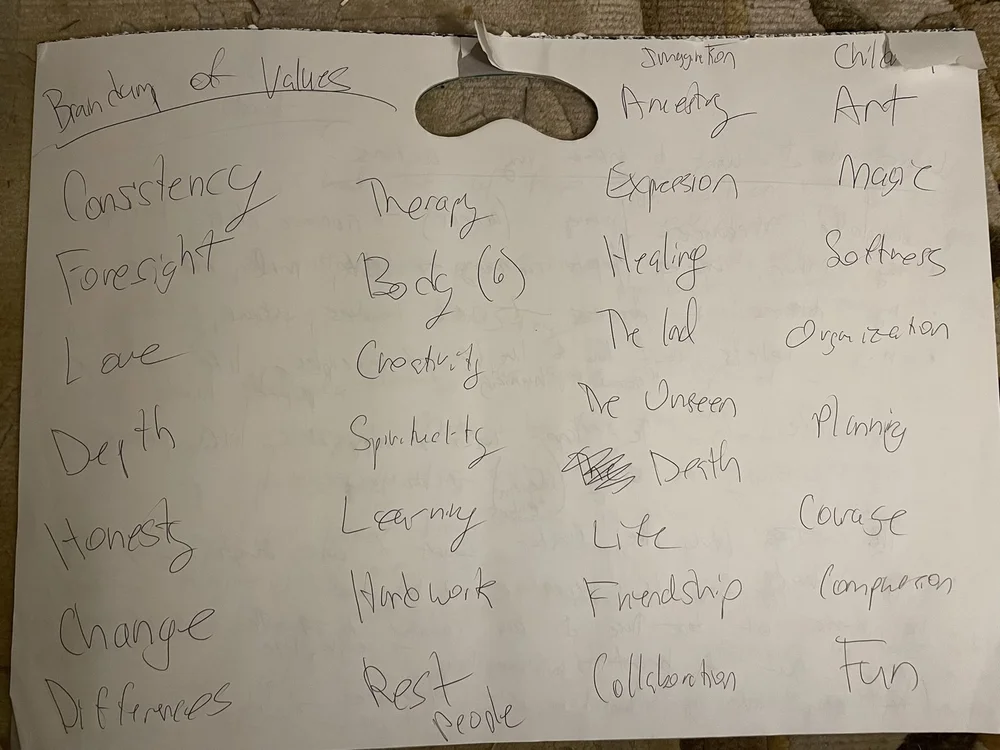 Braindump of Values
Consistency
Foresight
Love
Depth
Honesty
Change
Differences
Therapy
Body (6)
Creativity
Spirituality
Learning
Hard work
Rest
People
Imagination
Ancestry
Expression
Healing
The
The Unseen
Death
Life
Friendship
Collaboration
Child
Art
Magic
Softness
Organization
Planning
Courage
Compassion
Fun